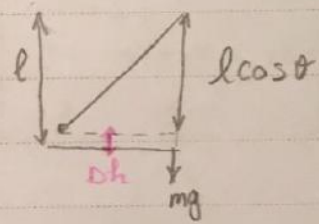 l
lcosθ
Δh
mg